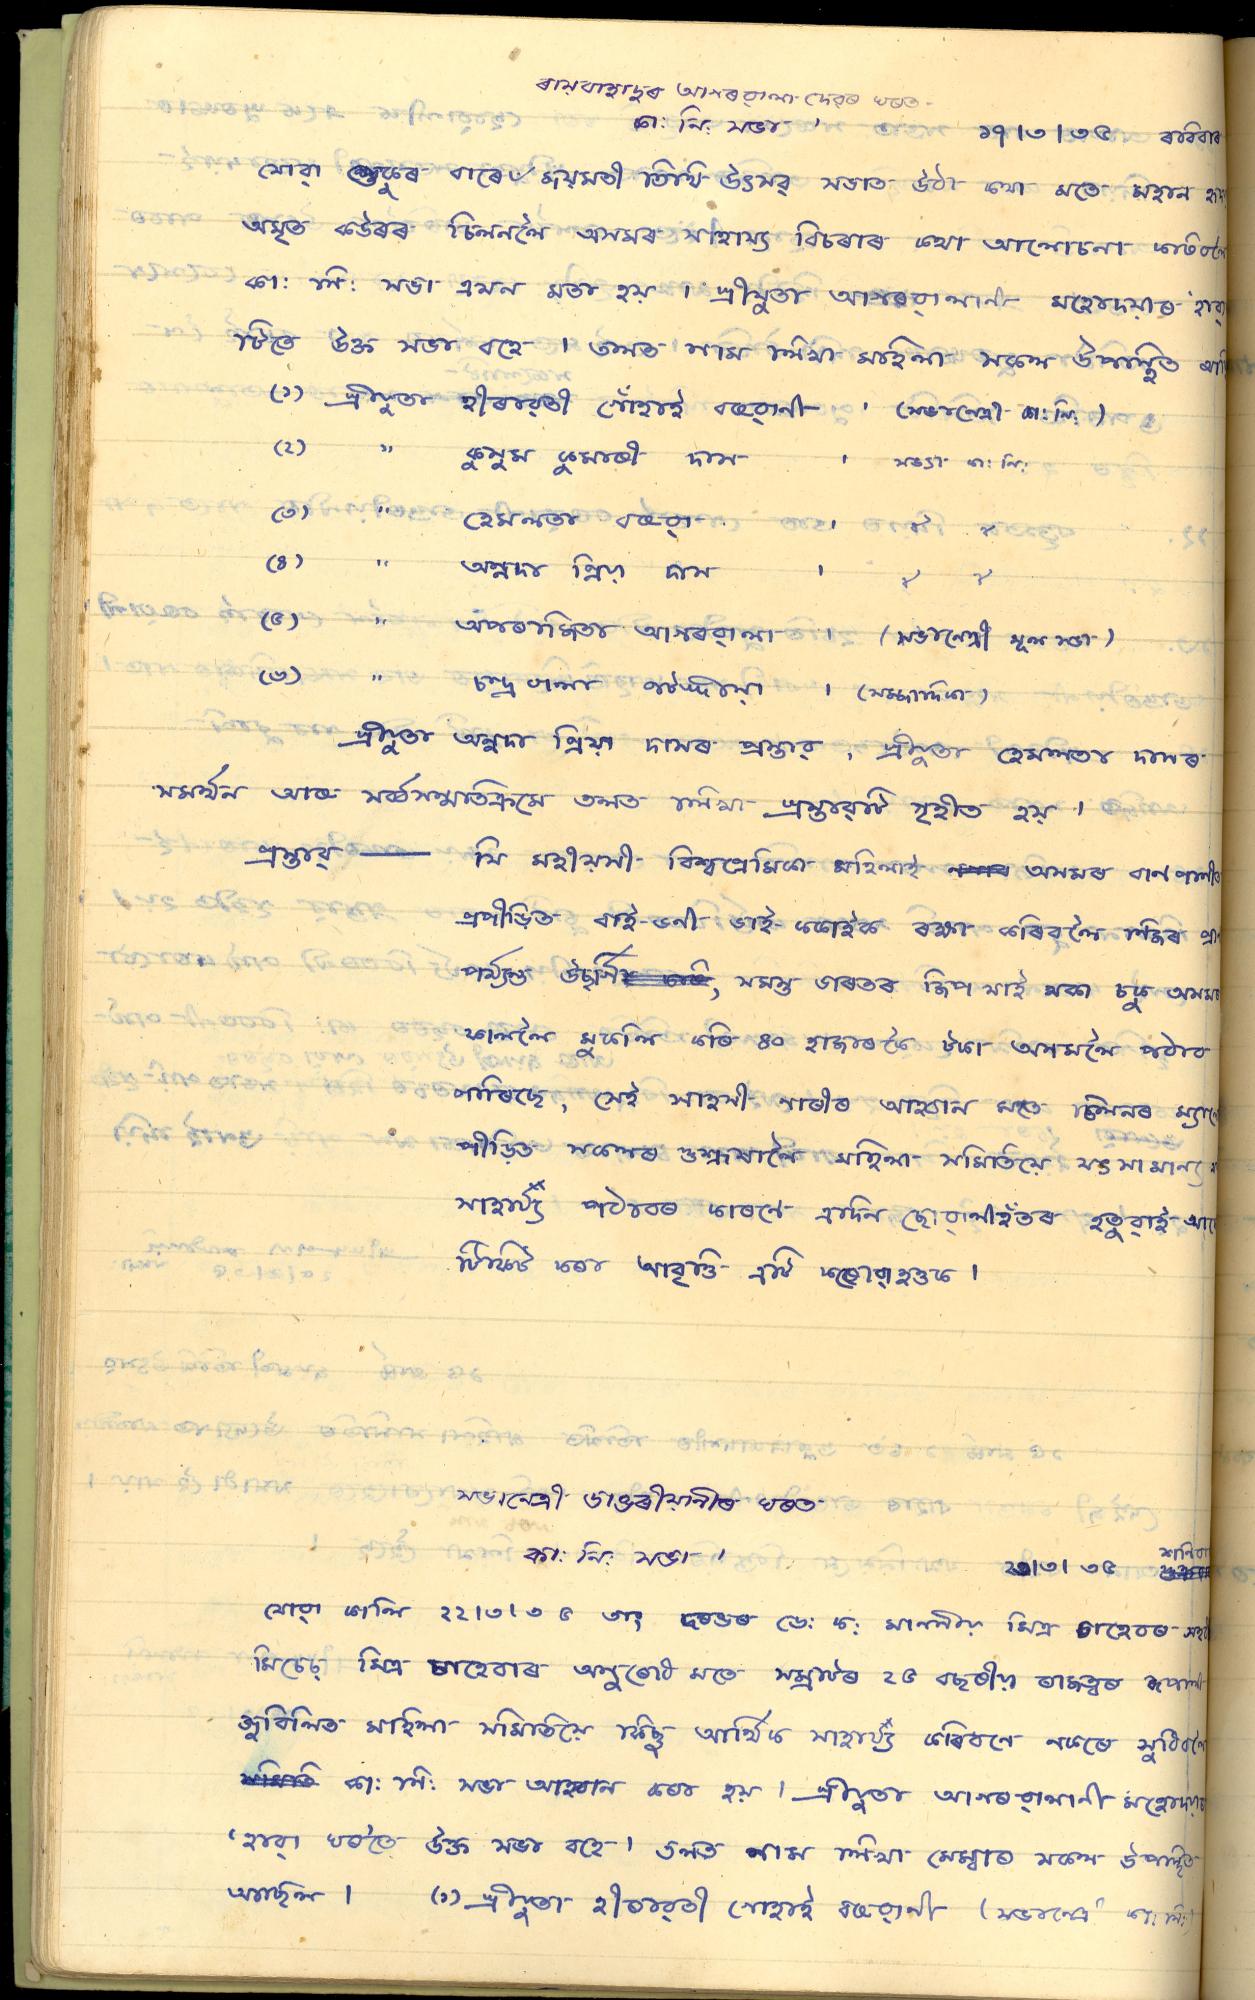 ৰায়বাহাদুৰ আগৰৱালা দেৱৰ ঘৰত
কা: নি: সভা ১৭।৩।৩৫ ৰবিবাৰ
যোৱা শুকুৰ বাৰে জয়মতী তিথি উৎসৱ সভাত উঠা কথা মতে মহান
অমৃত কউৰৰ চিলনলৈ অসমৰ সাহায্য বিচৰাৰ কথা আলোচনা কৰিবলৈ
কা: নি: সভা এখন মতা হয় । শ্ৰীযুতা আগৰৱালানী মহোদয়াৰ হাৱা
টিতে উক্ত সভা বহে । তলত নাম লিখা মহিলা সকল উপস্থিত
(১) শ্ৰীযুতা হীৰাৱতী গোঁহাই বৰুৱানী । (সভানেত্ৰী কা: নি:)
(২) " কুসুম কুমাৰী দাস । সভ্যা কা: নি:
(৩) " হেমলতা বৰুৱা । " "
(৪) " অন্নদা প্ৰিয়া দাস । " "
(৫) " অপৰাজিতা আগৰৱালা । (সভানেত্ৰী মূল সভা)
(৬) " চন্দ্ৰ বালা পটঙ্গীয়া । (সম্পাদিকা)
শ্ৰীযুতা অন্নদা প্ৰিয়া দাসৰ প্ৰস্তাৱ, শ্ৰীযুতা হেমলতা দাসৰ
সমৰ্থন আৰু সৰ্ব্বসন্মতিক্ৰমে তলত লিখা প্ৰস্তাৱটি গৃহীত হয় ।
প্ৰস্তাৱ — যি মহীয়সী বিশ্বপ্ৰেমিকা মহিলাই অসমৰ বান পানীৰ
প্ৰপীড়িত বাই-ভনী ভাই-ককাইক ৰক্ষা কৰিবলৈ নিজৰ
পৰ্য্যন্ত উচৰ্গি, সমস্ত ভাৰতৰ জিপ যাই থকা চকু অসমৰ
ফাললৈ মুকলি কৰি ৪০ হাজাৰকৈ টকা অসমলৈ পঠাব
পাৰিছে, সেই সাহসী নাৰীৰ আহ্বান মতে চিলনৰ
পীড়িত সকলৰ শুশ্ৰূষালৈ মহিলা সমিতিয়ে যৎসামান্য
সাহাৰ্য্য পঠাবৰ কাৰণে এদিন ছোৱালীহঁতৰ হতুৱাই
টিকিট কৰা আবৃত্তি এটি কৰোৱাহওক ।
সভানেত্ৰী ডাঙৰীয়ানীৰ ঘৰত
কা: নি: সভা । ২৩।৩।৩৫ শনিবাৰ
যোৱা কালি ২২।৩।৩৫ তাং দৰঙৰ ডে: ক: মাননীয় মিত্ৰ চাহেবৰ
মিচেচ্ মিত্ৰ চাহেবাৰ অনুৰোধ মতে সম্ৰাটৰ ২৫ বছৰীয় ৰাজত্বৰ ৰূপালী
জুবিলিত মহিলা সমিতিয়ে কিছু আৰ্থিক সাহাৰ্য্য কৰিবনে নকৰে সুধিবলৈ
কা: নি: সভা আহ্বান কৰা হয় । শ্ৰীযুতা আগৰৱালানী মহোদয়াৰ
হাৱা ঘৰতে উক্ত সভা বহে । তলত নাম লিখা মেম্বাৰ সকল উপস্থিত
আছিল । (১) শ্ৰীযুতা হীৰাৱতী গোহাই বৰুৱানী (সভানেত্ৰী কা: নি:)